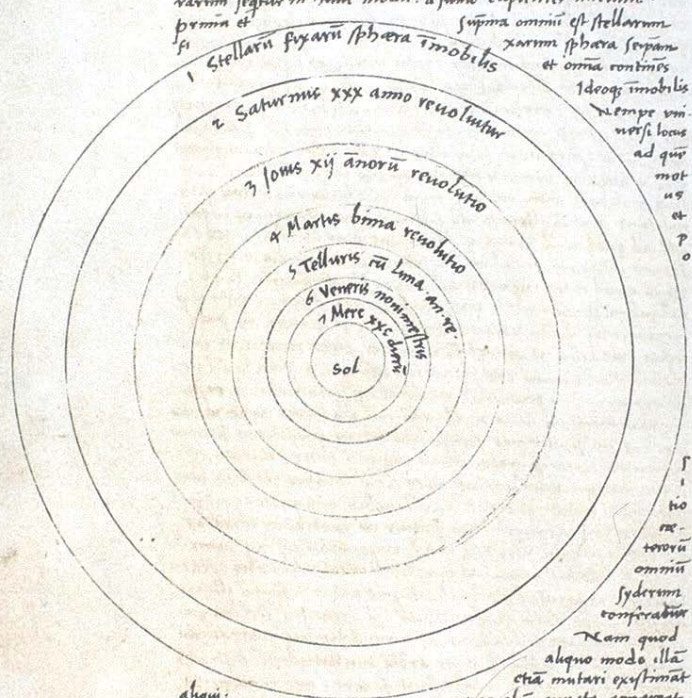 prima et suprema omniū est stellarum
fi xarum sphæra seipsam
et omnia continēs
Ideoqꝫ īmobilis
Nempe vni
uersi locus
ad quē
mot
us
et
p
o
1 Stellarū fixarū sphæra īmobilis
2 Saturnus xxx anno reuoluitur
3 Iouis xij ānorū reuolutio
4 Martis bima reuolutio
5 Telluris cū Luna an. re
6 Veneris nonimestris
7 Merc xxc dierū
Sol
s
i
tio
cæ-
terorū
omniū
syderum
conferatur
Nam quod
aliquo modo illā
etiā mutari existimāt
aliqui: